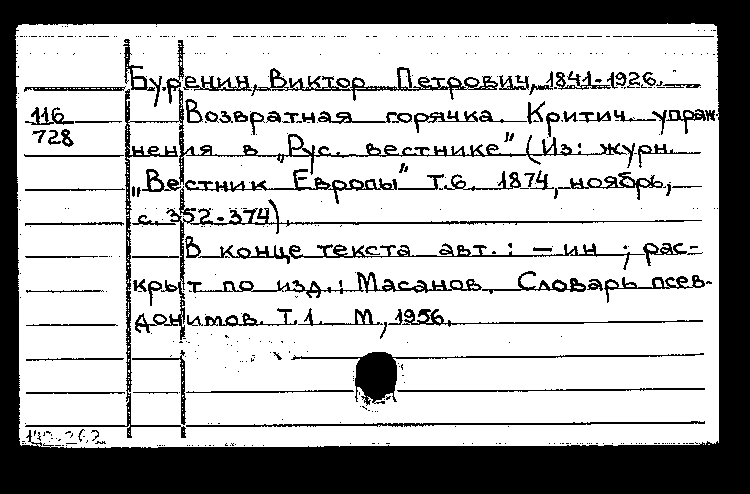 Буренин, Виктор Петрович, 1841-1926.
116
728
Возвратная горячка. Критич. упраж
нения в „Рус. вестнике" (Из: журн.
„Вестник Европы" т.6. 1874, ноябрь,
с. 352-374).
В конце текста авт.: — ин ; рас-
крыт по изд.: Масанов. Словарь псев-
донимов. Т.1. М., 1956.